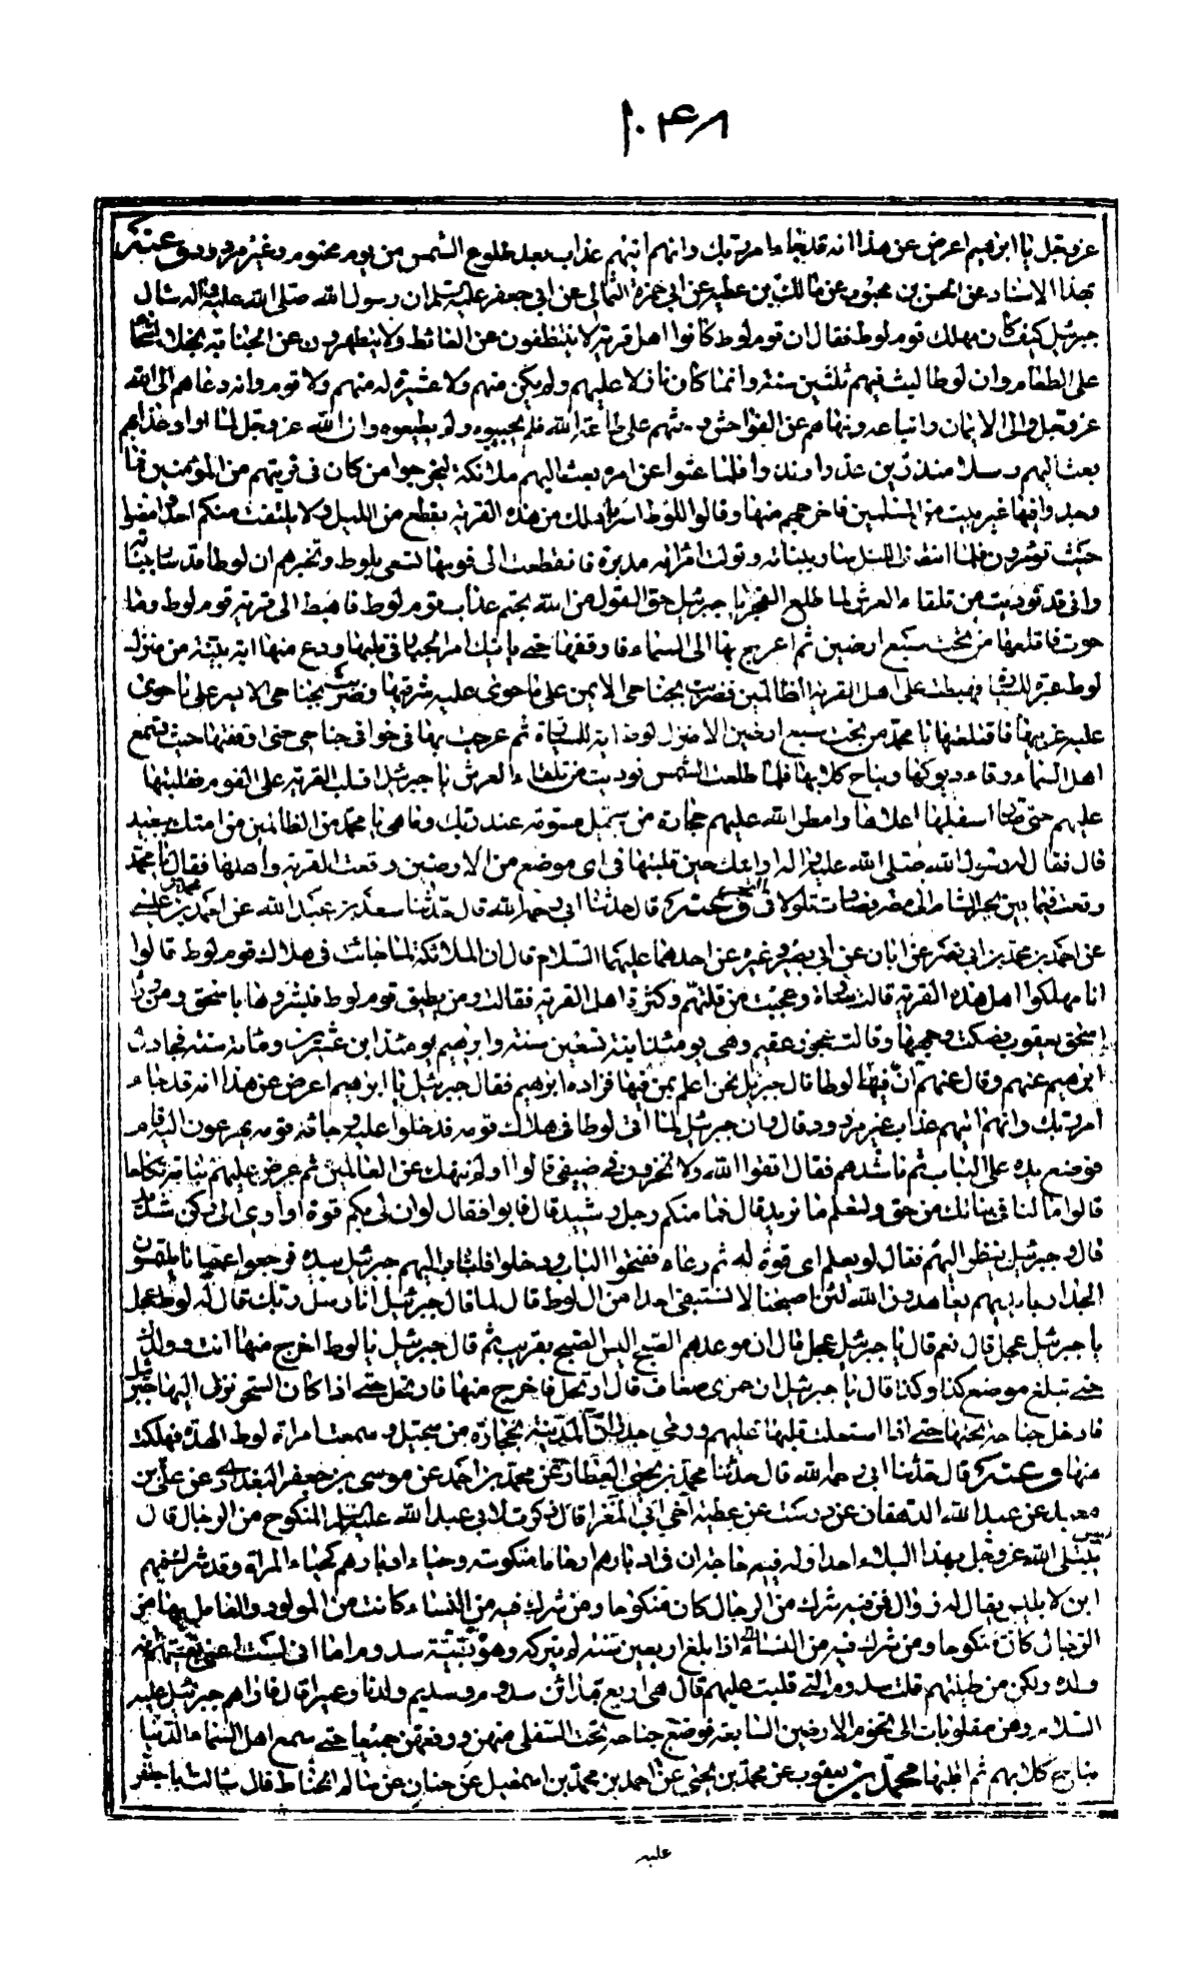 ١٠٤٨
عز وجل يا ابرهيم اعرض عن هذا انه قد جاء امر ربك وانهم اتيهم عذاب بعد طلوع الشمس من يوم محتوم وغير مردود وعنه
بهذا الاسناد عن الحسن بن محبوب عن مالك بن عطيه عن ابي حمزة الثمالي عن ابي جعفر عليه السلم ان رسول الله صلى الله عليه واله سال
جبرئيل كيف كان مهلك قوم لوط فقال ان قوم لوط كانوا اهل قرية لا يتنظفون من الغائط ولا يتطهرون عن الجنابة بخلاء اشحاء
على الطعام وان لوطا لبث فيهم ثلثين سنة وانما كان نازلا عليهم ولم يكن منهم ولا عشيرة له منهم ولا قوم وانه دعاهم الى الله
عز وجل والى الايمان واتباعه ونهاهم عن الفواحش وحثهم على طاعة الله فلم يجيبوه ولم يطيعوه وان الله عز وجل لما اراد عذابهم
بعث اليهم رسلا منذرين عذرا ونذرا فلما عتوا عن امره بعث اليهم ملائكة ليخرجوا من كان في قريتهم من المؤمنين فما
وجدوا فيها غير بيت من المسلمين فاخرجهم منها وقالوا للوط اسر باهلك من هذه القرية بقطع من الليل ولا يلتفت منكم احد وامضوا
حيث تؤمرون فلما انتصف الليل سار ببناته وتولت امراته مدبرة فانقطعت الى قومها تسعى بلوط وتخبرهم ان لوطا قد سار ببناته
واني قد نوديت من تلقاء العرش لما طلع الفجر يا جبرئيل حق القول من الله بحتم عذاب قوم لوط فاهبط الى قرية قوم لوط وما
حوت فاقلعها من تحت سبع ارضين ثم اعرج بها الى السماء فاوقفها حتى ياتيك امر الجبار في قلبها ودع منها اية بينة من منزل
لوط عبرة للسيارة فهبطت على اهل القرية الظالمين فضربت بجناحي الايمن على ما حوى عليه شرقيها وضربت بجناحي الايسر على ما حوى
عليه غربيها فاقتلعتها يا محمد من تحت سبع ارضين الا منزل لوط اية للسيارة ثم عرجت بها في خوافي جناحي حتى اوقفتها حيث تسمع
اهل السماء زقاء ديوكها ونباح كلابها فلما طلعت الشمس نوديت من تلقاء العرش يا جبرئيل اقلب القرية على القوم فقلبتها
عليهم حتى صار اسفلها اعلاها وامطر الله عليهم حجارة من سجيل مسومة عند ربك وما هي يا محمد من الظالمين من امتك ببعيد
قال فقال له رسول الله صلى الله عليه واله اوايك حين قلبتها في اي موضع من الارضين وقعت القرية واهلها فقال يا محمد
وقعت فيما بين بحر الشام الى مصر فصارت تلولا في البحر وعنه قال حدثنا ابي رحمه الله قال حدثنا سعد بن عبد الله عن احمد بن محمد بن عيسى
عن احمد بن محمد بن ابي نصر عن ابان عن ابي بصير وغيره عن احدهما عليهما السلام قال ان الملائكة لما جائت في هلاك قوم لوط قالوا
انا مهلكوا اهل هذه القرية قالت سارة وعجبت من قلتهم وكثرة اهل القرية فقالت ومن يطيق قوم لوط فبشروها باسحق ومن وراء
اسحق يعقوب فصكت وجهها وقالت عجوز عقيم وهي يومئذ ابنة تسعين سنة وابرهيم يومئذ ابن عشرين ومائة سنة فجادل
ابرهيم عنهم وقال عنهم ان فيها لوطا قال جبرئيل نحن اعلم بمن فيها فزاده ابرهيم فقال جبرئيل يا ابرهيم اعرض عن هذا انه قد جاء
امر ربك وانهم اتيهم عذاب غير مردود قال وان جبرئيل لما اتى لوطا في هلاك قومه فدخلوا عليه وجائه قومه يهرعون اليه قام
فوضع يده على الباب ثم ناشدهم فقال اتقوا الله ولا تخزون في ضيفي قالوا اولم ننهك عن العالمين ثم عرض عليهم بناته نكاحا
قالوا ما لنا في بناتك من حق وانك لتعلم ما نريد قال فما منكم رجل رشيد قال فابوا فقال لو ان لي بكم قوة او اوي الى ركن شديد
قال وجبرئيل ينظر اليهم فقال لو يعلم اي قوة له ثم دعاه ففتحوا الباب ودخلوا فاشار اليهم جبرئيل بيده فرجعوا عميانا يلتمسون
الجدار بايديهم يعاهدون الله لئن اصبحنا لا نستبقي احدا من ال لوط قال لما قال جبرئيل انا رسل ربك قال له لوط عجل
يا جبرئيل عجل قال نعم قال يا جبرئيل عجل قال ان موعدهم الصبح اليس الصبح بقريب ثم قال جبرئيل يا لوط اخرج منها انت وولدك
حتى تبلغ موضع كذا وكذا قال يا جبرئيل ان حمري ضعاف قال ارتحل فاخرج منها فارتحل حتى اذا كان السحر نزل اليها جبرئيل
فادخل جناحه تحتها حتى اذا استعلت قلبها عليهم ورمى جدران المدينة بحجارة من سجيل وسمعت امراة لوط الهدة فهلكت
منها وعنه قال حدثنا ابي رحمه الله قال حدثنا محمد بن يحيى العطار عن محمد بن احمد عن موسى بن جعفر البغدادي عن علي بن
معبد عن عبيد الله الدهقان عن درست عن عطية اخي ابي المغرا قال ذكرت لابي عبد الله عليه السلم المنكوح من الرجال قال
ليس يبتلى الله عز وجل بهذا البلاء احدا وله فيه حاجة ان في ادبارهم ارحاما منكوسة وحياء ادبارهم كحياء المراة وقد شرك فيهم
ابن لابليس يقال له زوال فمن شرك فيه من الرجال كان منكوحا ومن شرك فيه من النساء كانت من المولود والعامل بها من
الرجال كان منكوحا ومن شرك فيه من النساء اذا بلغ اربعين سنة لم يتركه وهو بقية سدوم اما اني لست اعني بقيتهم انه
ولده ولكن من طينتهم قلت سدوم التي قلبت عليهم قال هي اربع مدائن سدوم وسديم ولدنا وعميرا قال فاتاهم جبرئيل عليه
السلام وهن مقلوبات الى تخوم الارضين السابعة فوضع جناحه تحت السفلى منهن ورفعهن جميعا حتى سمع اهل السماء الدنيا
نباح كلابهم ثم قلبها محمد بن يعقوب عن محمد بن يحيى عن احمد بن محمد بن اسمعيل عن حنان عن سالم الحناط قال سالت ابا جعفر
عليه